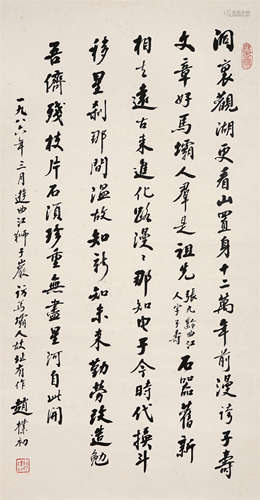 洞裏觀湖更看山置身十二萬年前漫誇子壽
文章好馬壩人羣是祖先張九齡曲江人字子壽石器舊新
相去遠古來進化路漫漫那知电子今時代換斗
移星刹那間溫故知新知未來勤勞改造勉
吾儕殘枝片石須珍重無盡星河自此開
一九八六年三月遊曲江獅子巖訪馬壩人故址有作趙樸初